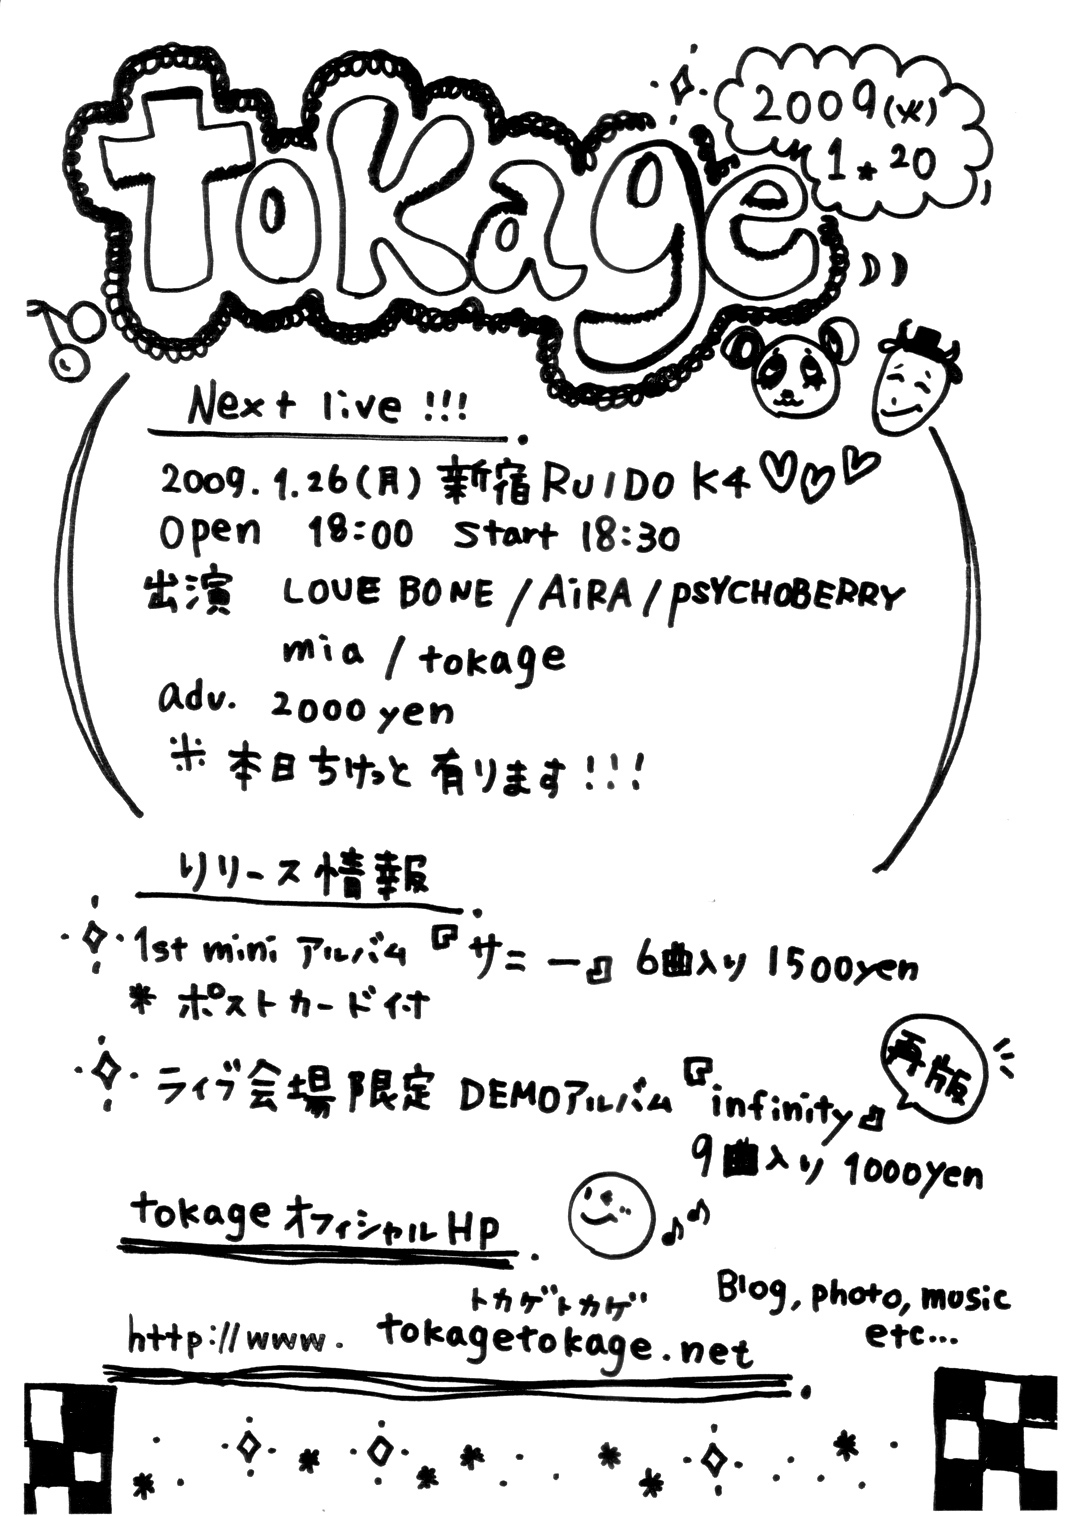 tokage
2009(火)
1.20
Next live !!!
2009.1.26(月) 新宿 RUIDO K4
Open 18:00 Start 18:30
出演 LOVE BONE / AiRA / PSYCHOBERRY
mia / tokage
adv. 2000 yen
※ 本日ちけっと有ります!!!
リリース情報
1st mini アルバム『サニー』6曲入り 1500yen
* ポストカード付
ライブ会場限定 DEMOアルバム『infinity』
再版
9曲入り 1000yen
tokage オフィシャル HP
トカゲトカゲ
http://www.tokagetokage.net
Blog, photo, music
etc...